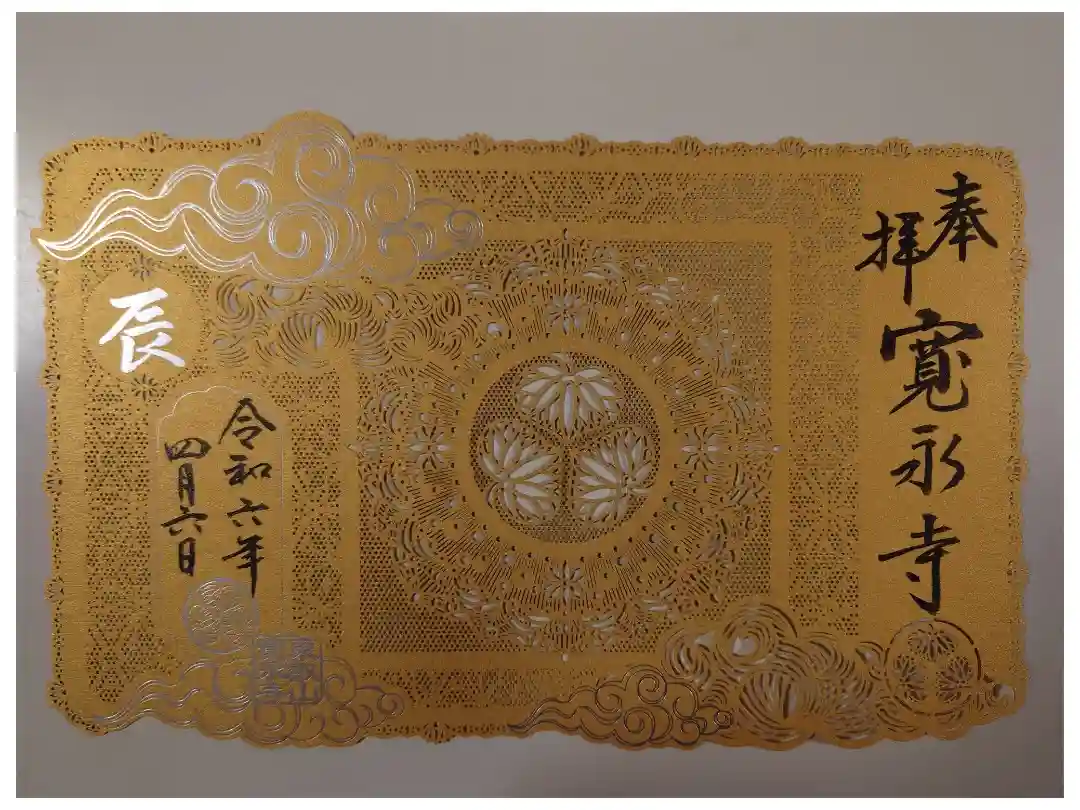 奉拝
寛永寺
令和六年
四月六日
辰